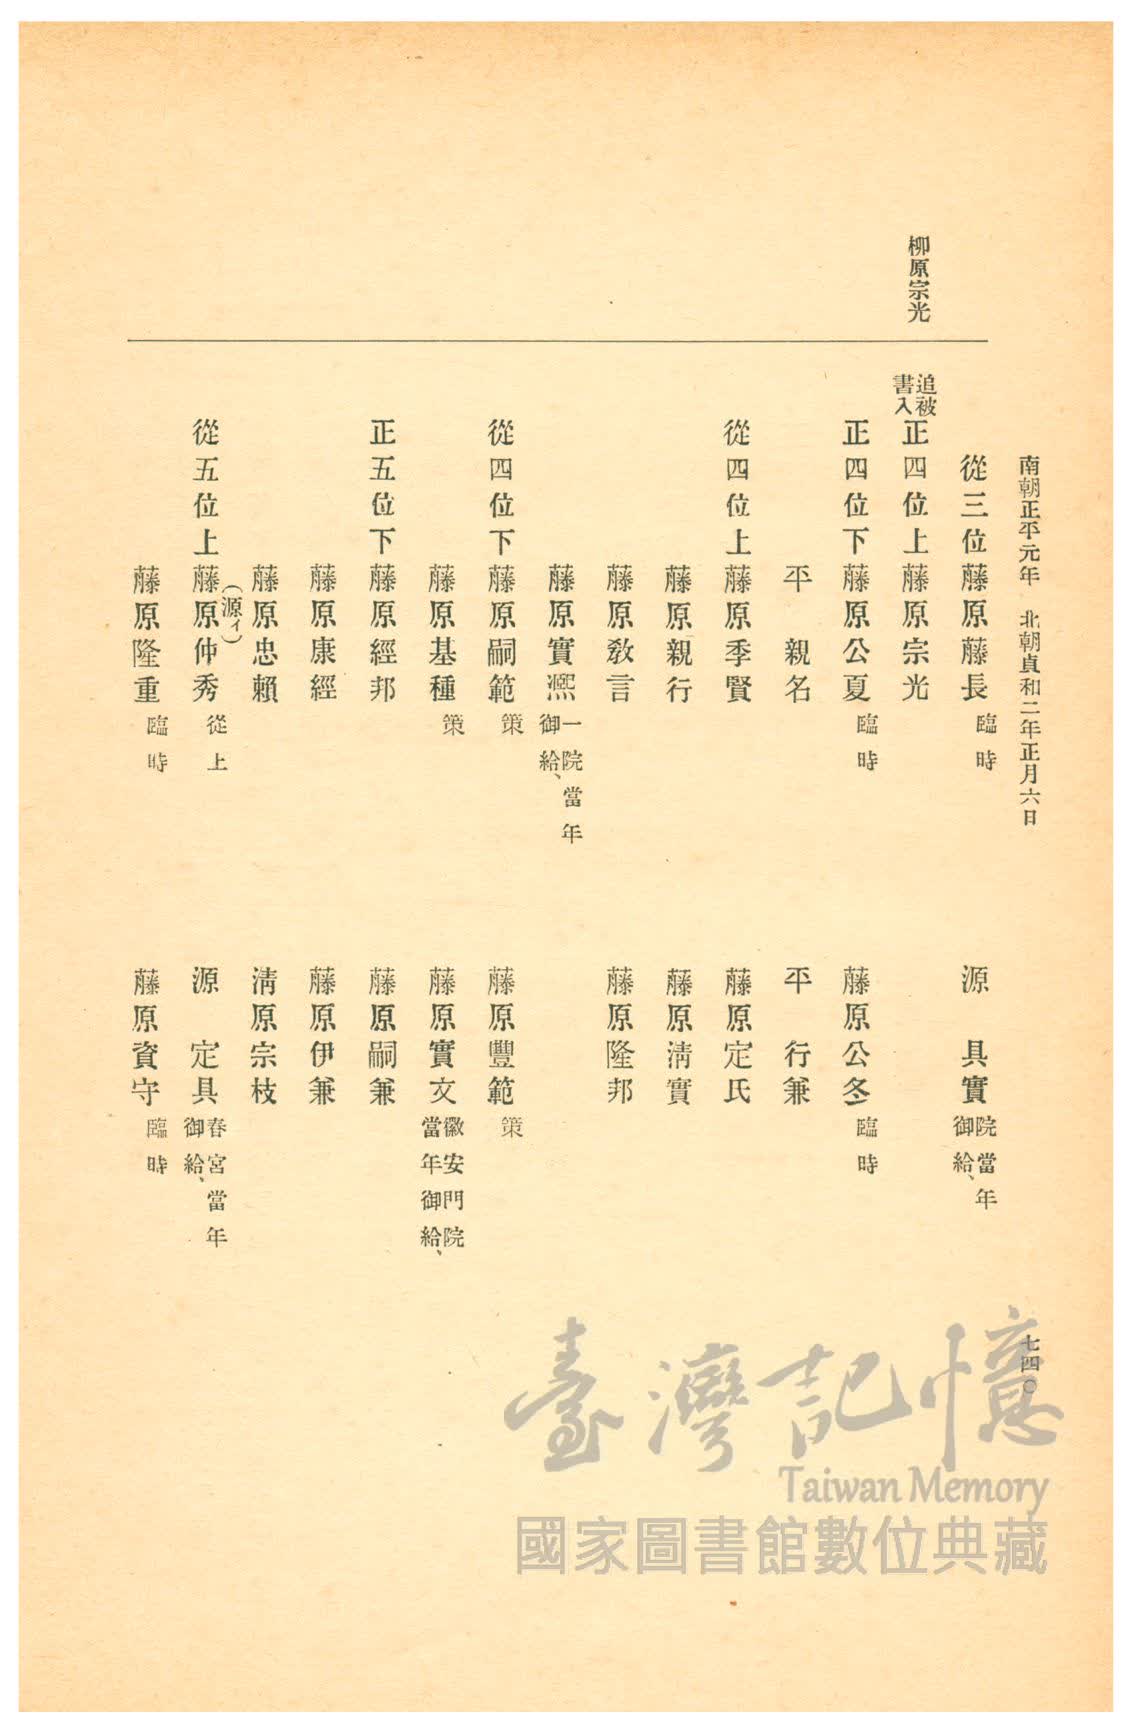 南朝正平元年　北朝貞和二年正月六日
七四〇
柳原宗光
從三位藤原藤長臨時　源　具實院當年御給、
追被書入正四位上藤原宗光
正四位下藤原公夏臨時　藤原公冬臨時
平　親名　平　行兼
從四位上藤原季賢　藤原定氏
藤原親行　藤原淸實
藤原教言　藤原隆邦
藤原實凞一院當年御給、
從四位下藤原嗣範策　藤原豐範策
藤原基種策　藤原實文徽安門院當年御給、
正五位下藤原經邦　藤原嗣兼
藤原康經　藤原伊兼
藤原忠賴　淸原宗枝
從五位上藤原(源イ)仲秀從上　源　定具春宮當年御給、
藤原隆重臨時　藤原資守臨時
臺灣記憶
Taiwan Memory
國家圖書館數位典藏